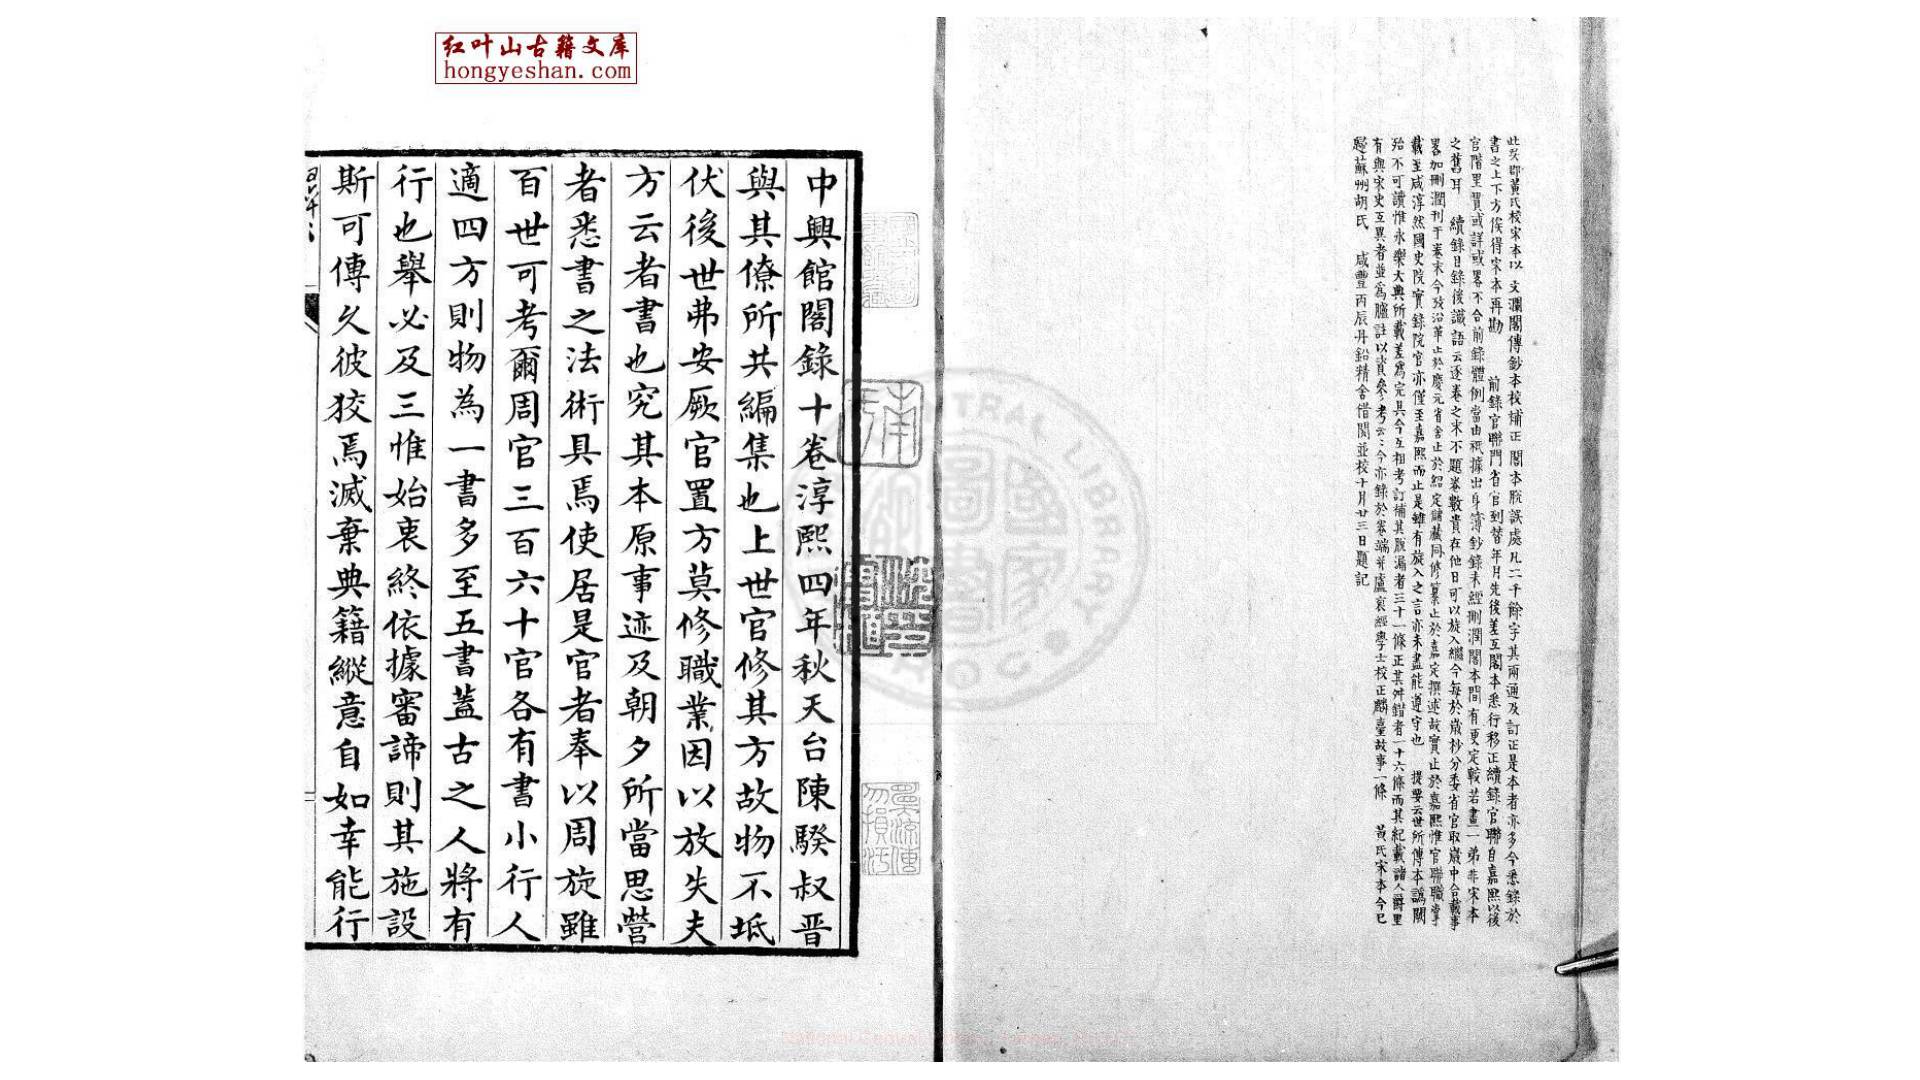 红叶山古籍文库
hongyeshan.com
書之上下方俟得宋本再勘　前錄官聯門省官到替年月先後差互閣本悉行移正續錄官聯自嘉熙以後
官階里貫或詳或畧不合前錄體例當由祇據出身簿鈔錄未經刪潤閣本間有更定較若畫一弟非宋本
之舊耳　續錄目錄後識語云逐卷之末不題卷數貴在他日可以旋入繼今每於歲杪分委省官取歲中合載事
畧加刪潤刊于卷末今攷沿革止於慶元省舍止於紹定儲藏同修纂止於嘉定撰述故實止於嘉熙惟官聯職掌
載至咸淳然國史院實錄院官亦僅至嘉熙而止是雖有旋入之言亦未盡能遵守也　提要云世所傳本譌闕
殆不可讀惟永樂大典所載差為完具今互相考訂補其脫漏者三十一條正其舛錯者一十六條而其紀載諸人爵里
有與宋史互異者並為臚註以資參考云云今亦錄於卷端並盧裒經學士校正麟臺故事一條　黃氏宋本今已
蘇州胡氏　咸豐丙辰丹鉛精舍借閱並校十月廿三日題記
中興館閣錄十卷淳熙四年秋天台陳騤叔晋
與其僚所共編集也上世官修其方故物不坻
伏後世弗安厥官置方莫修職業因以放失夫
方云者書也究其本原事迹及朝夕所當思營
者悉書之法術具焉使居是官者奉以周旋雖
百世可考爾周官三百六十官各有書小行人
適四方則物為一書多至五書蓋古之人將有
行也舉必及三惟始衷終依據審諦則其施設
斯可傳久彼狡焉滅棄典籍縱意自如幸能行